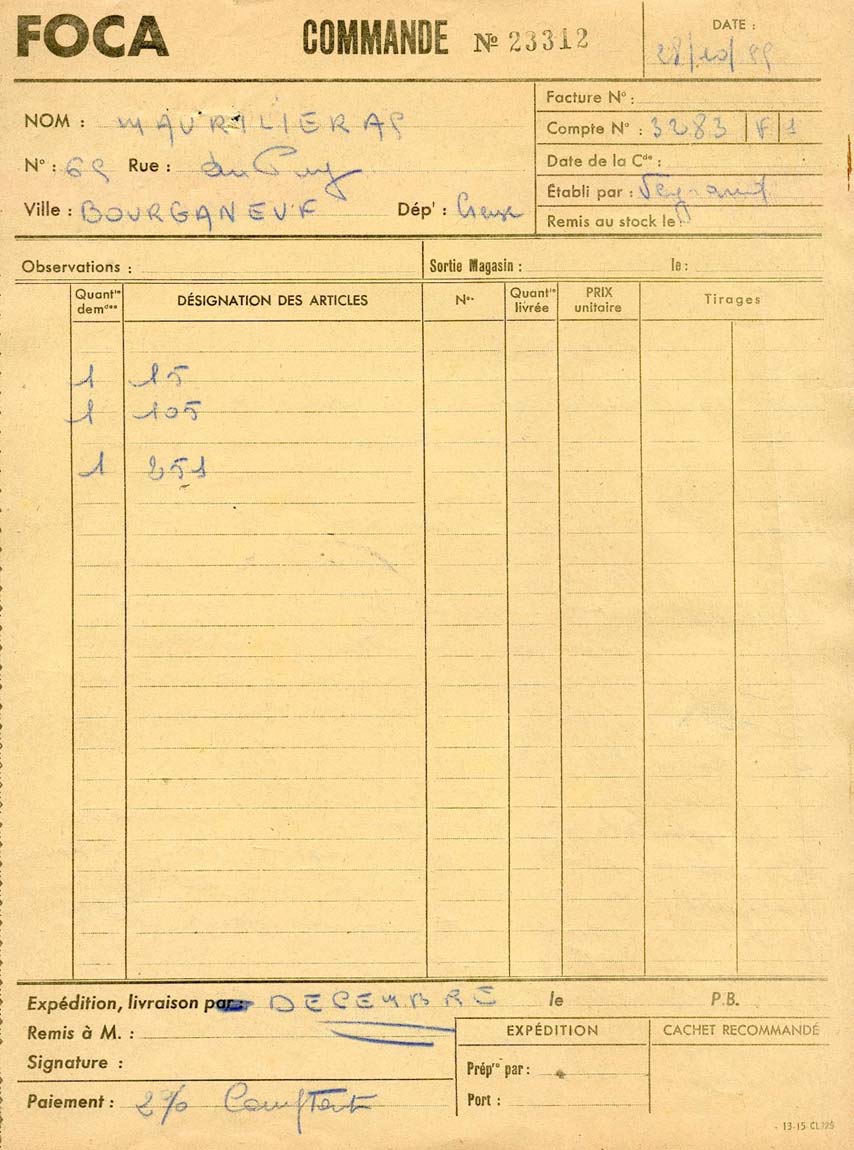 FOCA COMMANDE Nº 23312 DATE :
28/10/55
Facture Nº :
NOM : MAURILIERAS
Compte Nº : 3283 F 1
Nº : 69 Rue : du Puy
Date de la Cde :
Établi par :
Ville : BOURGANEUF Dépt : Creuse
Remis au stock le :
Observations : Sortie Magasin : le :
Quantité demdée DÉSIGNATION DES ARTICLES Nos Quantité livrée PRIX unitaire Tirages
1 15
1 105
1 251
Expédition, livraison par : DECEMBRE le P.B.
Remis à M. : EXPÉDITION CACHET RECOMMANDÉ
Signature :
Prépée par :
Paiement : 2% Comptant
Port :
- 13-15 CL